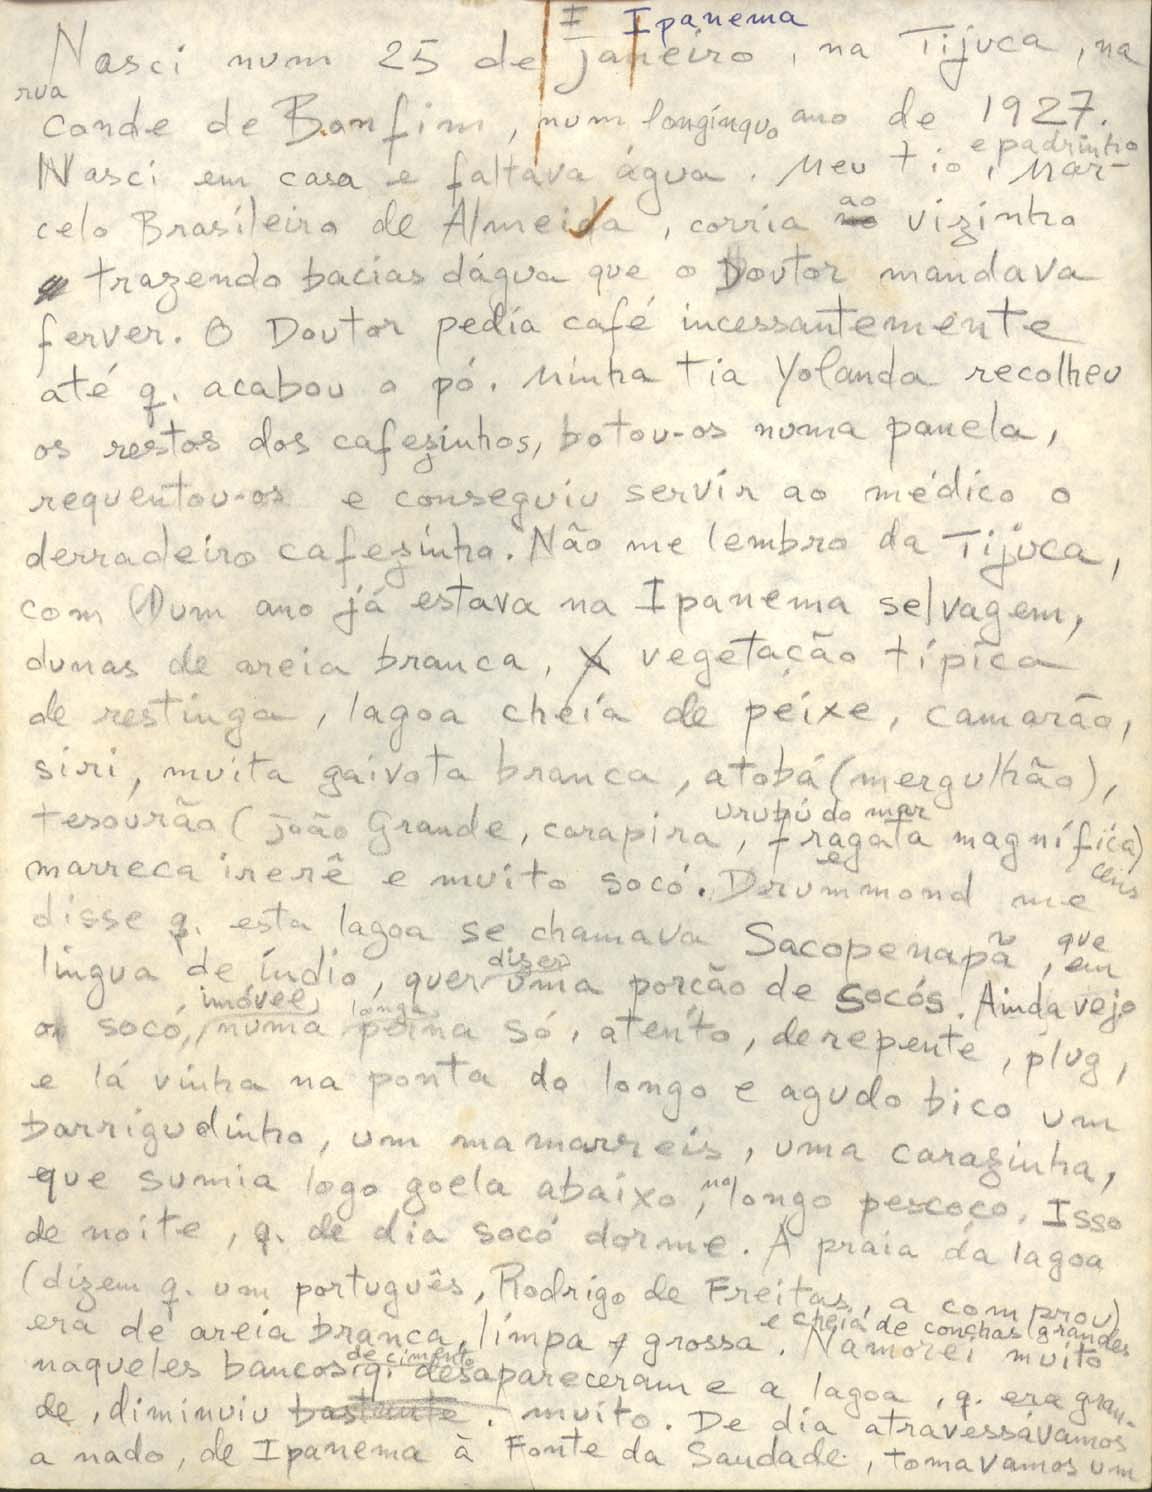 I Ipanema
Nasci num 25 de Janeiro, na Tijuca, na
rua
Conde de Bonfim, num longínquo ano de 1927.
e padrinho
Nasci em casa e faltava água. Meu tio, Mar-
ao
celo Brasileiro de Almeida, corria no vizinho
trazendo bacias dágua que o Doutor mandava
ferver. O Doutor pedia café incessantemente
até q. acabou o pó. Minha tia Yolanda recolheu
os restos dos cafezinhos, botou-os numa panela,
requentou-os e conseguiu servir ao médico o
derradeiro cafezinho. Não me lembro da Tijuca,
com Dum ano já estava na Ipanema selvagem,
dunas de areia branca, vegetação típica
de restinga, lagoa cheia de peixe, camarão,
siri, muita gaivota branca, atobá (mergulhão),
urubú do mar
tesourão (João Grande, carapira, fragata magnífica)
e
marreca irerê e muito socó. Drummond me
disse q. esta lagoa se chamava Sacopenapã, que
em
dizer
língua de índio, quer uma porção de socós. Ainda vejo
, imóvel, longa
o socó, numa perna só, atento, derepente, plug,
e lá vinha na ponta do longo e agudo bico um
barrigudinho, um mamarreis, uma carazinha,
no
que sumia logo goela abaixo, longo pescoço. Isso
de noite, q. de dia socó dorme. A praia da lagoa
(dizem q. um português, Rodrigo de Freitas, a comprou)
e cheia de conchas grandes
era de areia branca, limpa e grossa. Namorei muito
de cimento
naqueles bancos q. desapareceram e a lagoa, q. era gran-
de, diminuiu bastante. muito. De dia atravessávamos
a nado, de Ipanema à Fonte da Saudade, tomavamos um